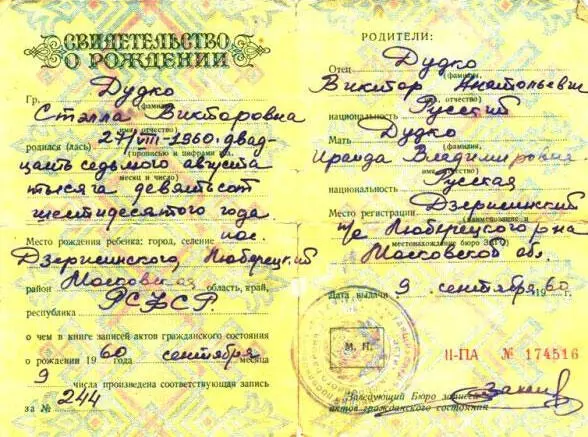 СВИДЕТЕЛЬСТВО
О РОЖДЕНИИ
Гр. Дудко
(фамилия,
Стэлла Викторовна
имя, отчество)
родился (лась) 27/VIII-1960г двад-
(прописью и цифрами год,
цать седьмого августа
месяц и число)
тысяча девятьсот
шестидесятого года
Место рождения ребенка: город, селение пос.
Дзержинского Люберецкий
район Московская область, край,
республика РСФСР.
о чем в книге записей актов гражданского состояния
о рождении 19 60 года сентября месяца
9 числа произведена соответствующая запись
за № 244
РОДИТЕЛИ:
Отец Дудко
(фамилия,
Виктор Анатольевич
имя, отчество)
национальность Русский
Мать Дудко
(фамилия,
Ираида Владимировна
имя, отчество)
национальность Русская
Место регистрации Дзержинский
(наименование и
п/с Люберецкого р-на
местонахождение бюро ЗАГС)
Московской обл.
Дата выдачи 9 сентября 1960 г.
М. П.
II-ПА № 174516
Заведующий Бюро записей
актов гражданского состояния